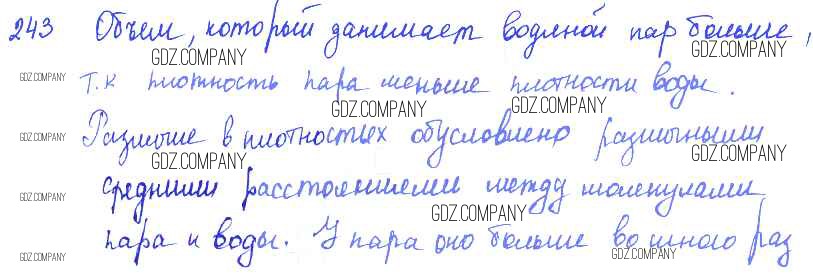 243 Объем, который занимает водяной пар больше,
GDZ.COMPANY GDZ.COMPANY
GDZ.COMPANY т.к плотность пара меньше плотности воды.
GDZ.COMPANY GDZ.COMPANY
GDZ.COMPANY Различие в плотностях обусловлено различными
GDZ.COMPANY GDZ.COMPANY
GDZ.COMPANY средними расстояниями между молекулами
GDZ.COMPANY
GDZ.COMPANY пара и воды. У пара оно больше во много раз
GDZ.COMPANY